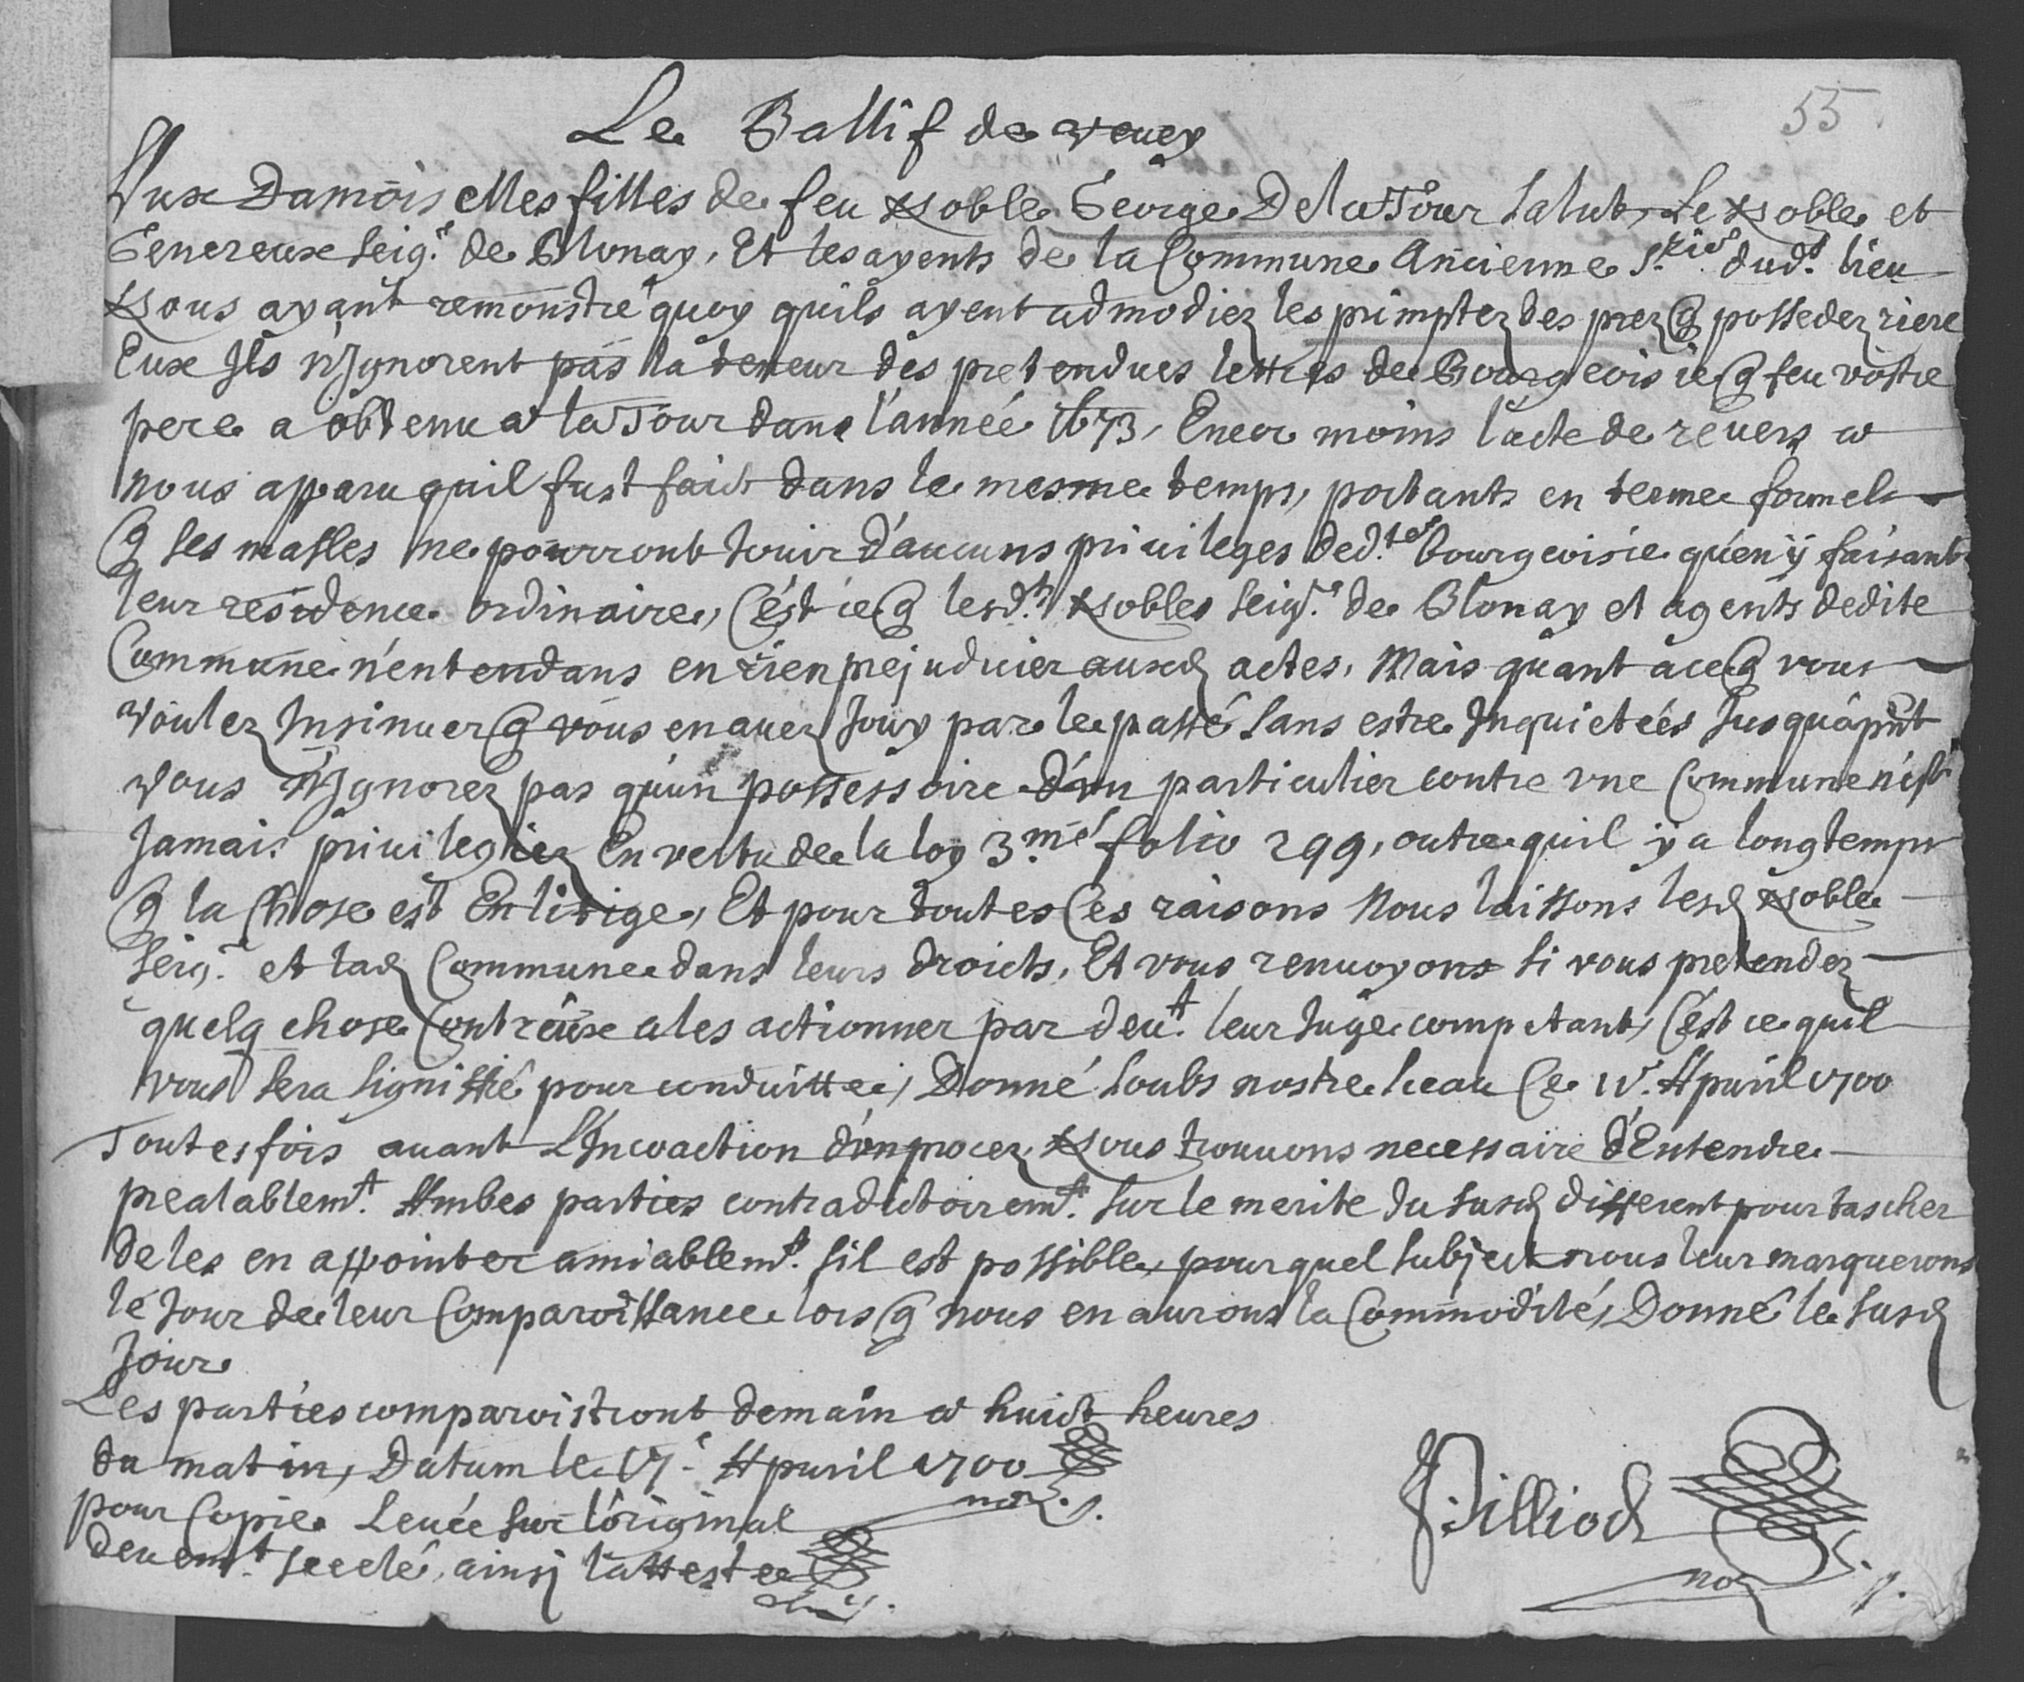 55
Le Ballif de vevey
Aux Damoiselles filles de feu Noble George DelaTour Salut, Le Noble et
Genereux Seigr. de Blonay, Et les agents de la Commune Ancienne dudt. lieu
Nous ayant remonstré quoy quils ayent admodiez les primptez des prez q possedez riere
Eux Ils n'Ignorent pas la teneur des pretendues lettres de Bourgeoisie q feu vostre
pere a obtenu a la Tour dans l'année 1673, Encor moins l'acte de revers a
nous apparu quil fust faict dans le mesme temps, portants en terme formels
q ses masles ne pourront Jouir d'aucuns privileges dedte. bourgeoisie qu'en ÿ faisant
leur residence ordinaire, C'est ce q lesdts. Nobles Seigrs. de Blonay et agents dedite
Commune n'entendans en rien prejudicier auxd actes. Mais quant a ce q vous
voulez Insinuer q vous en avez Jouy par le passé Sans estre Inquietées Jusqu'a pnt
vous n'Ignorez pas qu'un possessoire d'un particulier contre vne Commune n'est
Jamais privilegiez En vertu de la loy 3me. folio 299, outre quil y a longtemps
q la Chose est En litige, Et pour toutes Ces raisons Nous laissons lesd Noble
Seigr. et lad Commune dans leurs droicts, Et vous renvoyons si vous pretendez
quelq chose Contr'eux a les actionner par devt. leur Juge competant, C'est ce quil
vous sera Signiffié pour conduitte, Donné Soubs nostre Sceau Ce 15e. Apvril 1700
Toutesfois avant L'Incoaction d'un procez, Nous trouvons necessaire d'Entendre
prealablemt. Ambes parties contradictoiremt. Sur le merite du Susd different pour tascher
de les en appointer amiablemt. Sil est possible, pour quel Subject nous leur marquerons
le Jour de leur Comparoissance lors q nous en aurons la Commodité, Donné le Susd
Jour
Les parties comparoistront demain a huict heures
du matin, Datum le 17e. Apvril 1700
pour Copie Levée Sur l'original
devemt. Scelé, ainsj l'atteste
Pilliod